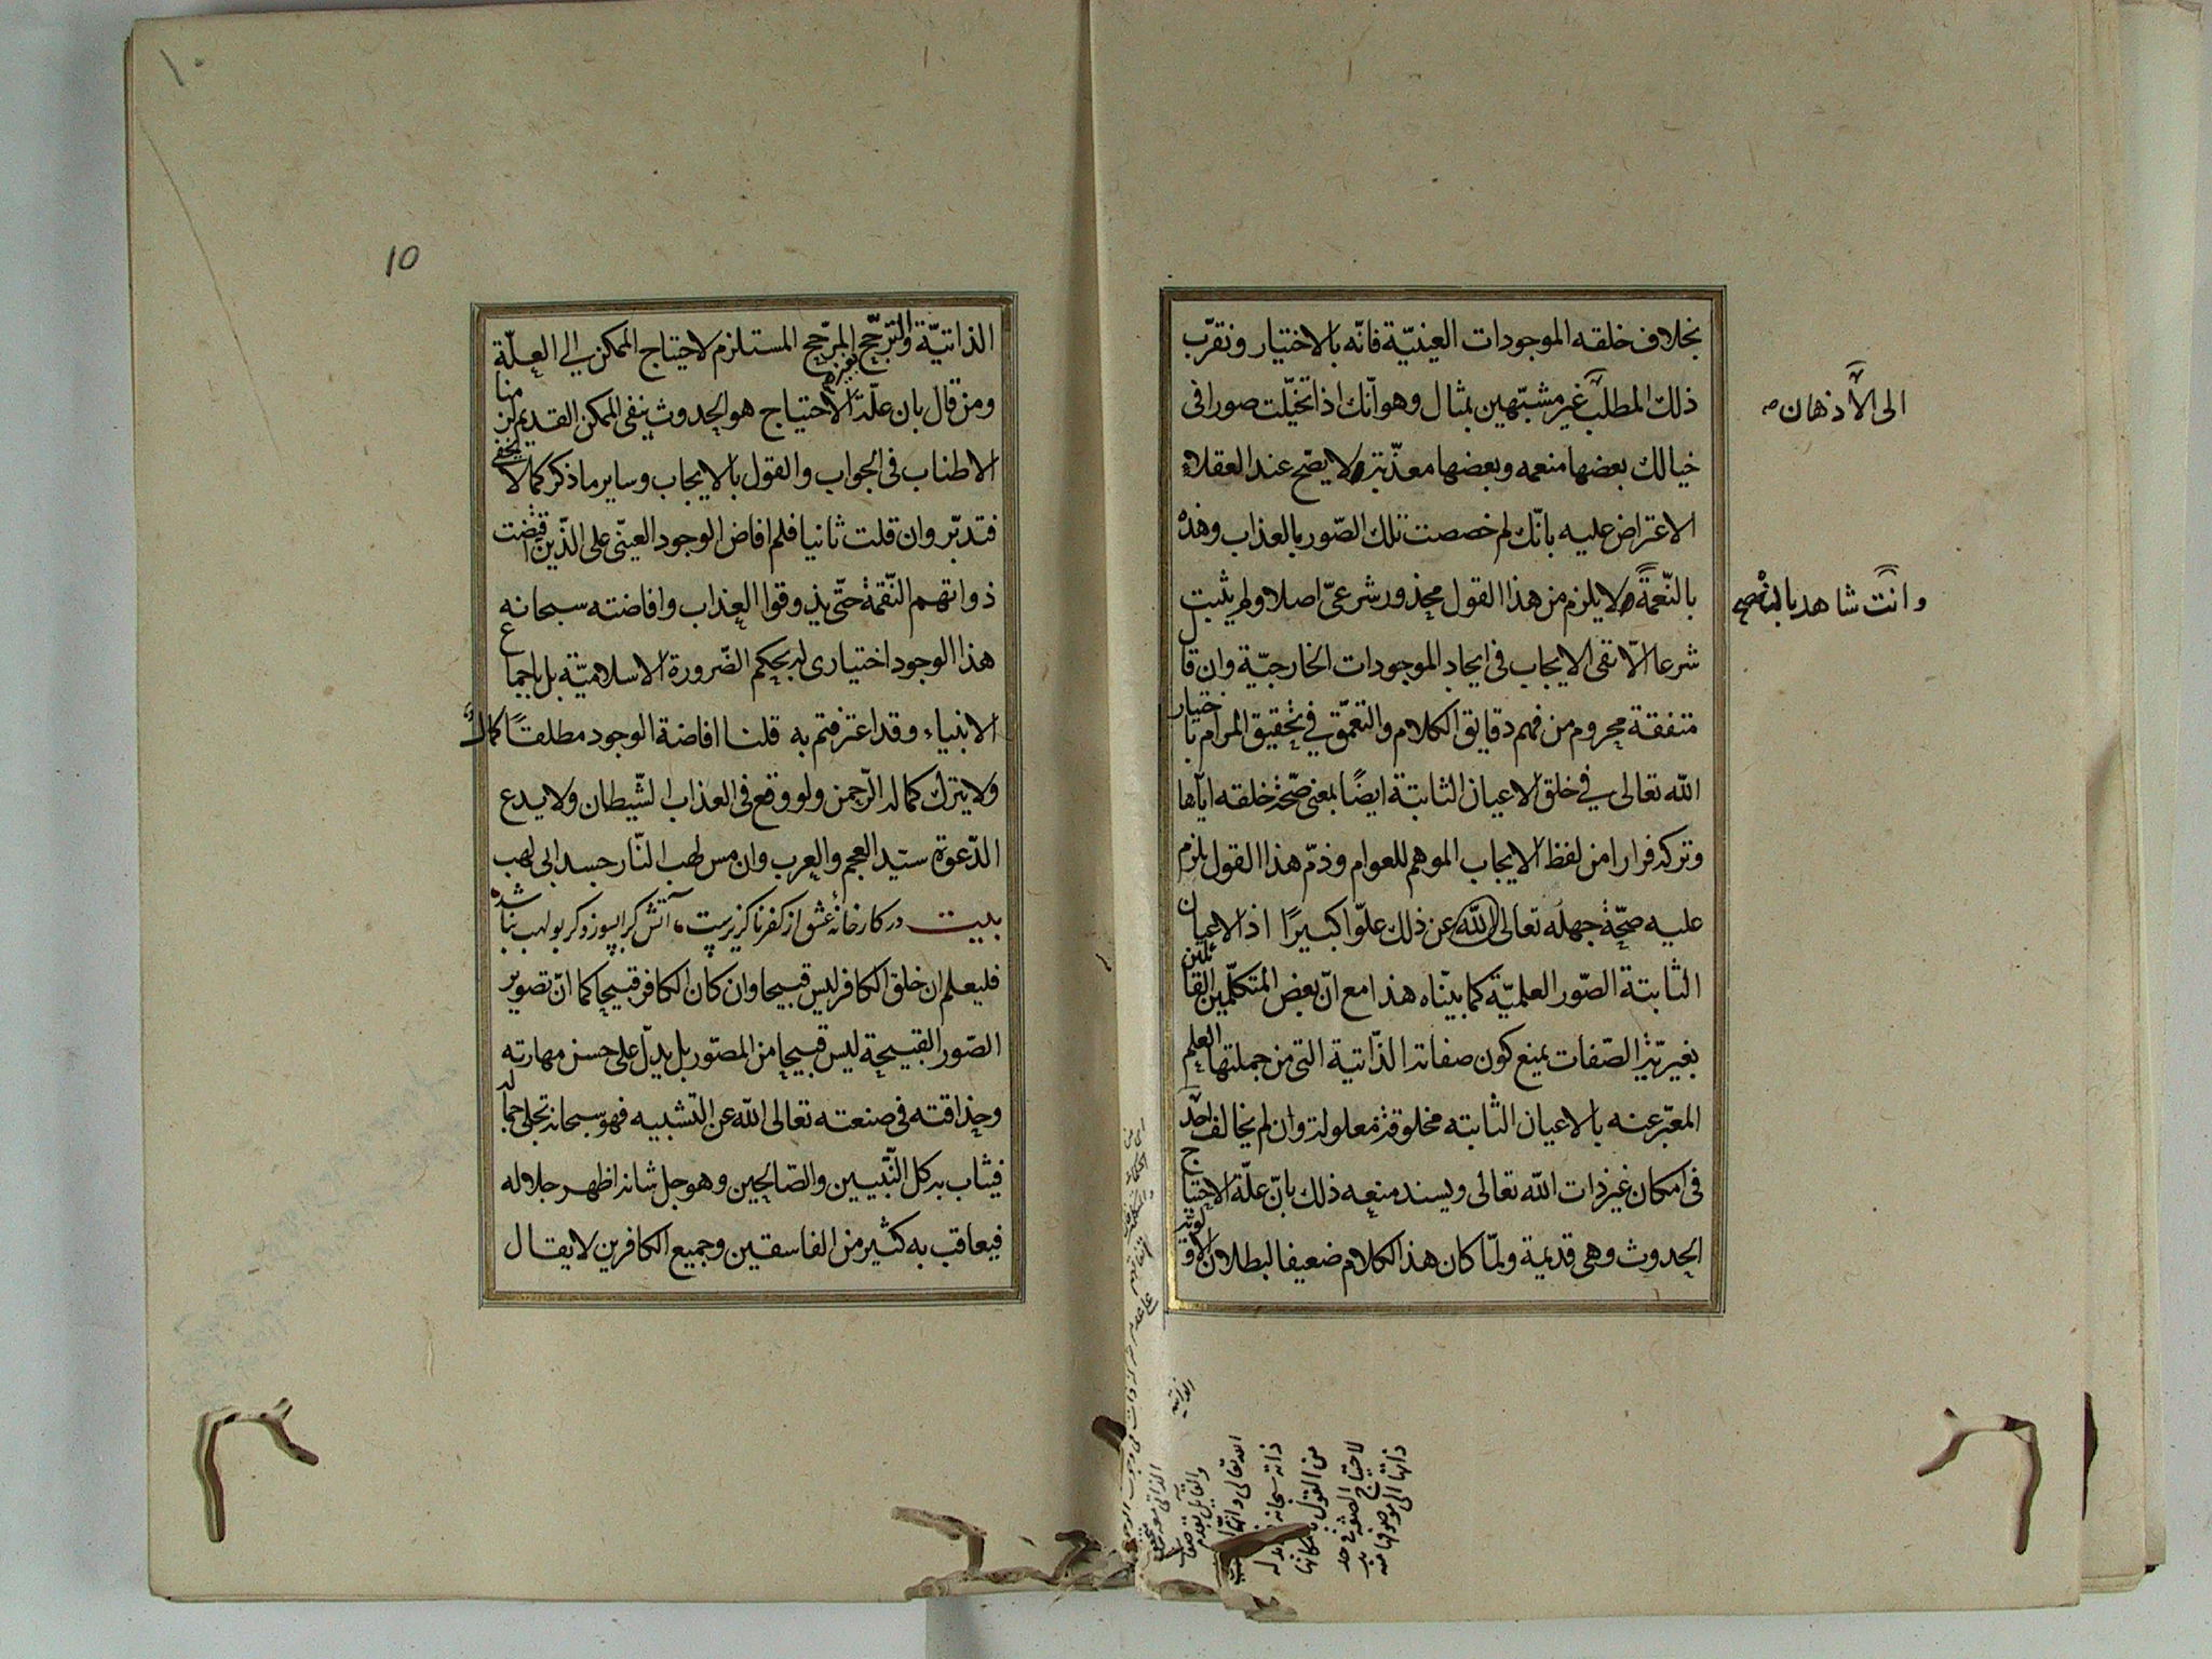 بخلاف خلقه الموجودات العينيّة فانّه بالاختيار ونقرّب
ذلك المطلب غير مشبّهين بمثال وهو انّك اذا تخيّلت صورا فى
خيالك بعضها منعمه وبعضها معذّبة لا يصّح عند العقلاء
الاعتراض عليه بانّك لم خصصت تلك الصّور بالعذاب وهذه
بالنّعمة ولا يلزم من هذا القول محذور شرعىّ اصلا ولم يثبت
شرعا الّا نفى الايجاب فى ايجاد الموجودات الخارجيّة وان قال
متفقة محروم من فهم دقايق الكلام والتعمّق في تحقيق المرام باختيار
الله تعالى في خلق الاعيان الثابتة ايضًا بمعنى صّحة خلقه ايّاها
وتركه فرارا من لفظ الايجاب الموهم للعوام وذمّ هذا القول يلزم
عليه صحّة جهله تعالى الله عن ذلك علوّا كبيرًا اذ الاعيان
الثابتة الصّور العلميّة كما بيّناه هذا مع انّ بعض المتكلّمين القائلين
بغيريّة الصّفات يمنع كون صفاته الذّاتية التى من جملتها العلم
المعبّر عنه بالاعيان الثابته مخلوقة معلولة وان لم يخالف احد
فى امكان غير ذات الله تعالى ويسند منعه ذلك بانّ علّة الاحتياج
الحدوث وهى قديمة ولمّا كان هذا الكلام ضعيفا لبطلان الاولويّة
الى الأذهان
وانت شاهد بالبداهة
الذاتيّة والترجّح بغير المرجّح المستلزم لاحتياج الممكن الى العلّة
ومن قال بان علّة الاحتياج هو الحدوث ينفى الممكن القديم لزمنا
الاطناب فى الجواب والقول بالايجاب وساير ما ذكر كما لا يخفى
فتدبّر وان قلت ثانيا فلم افاض الوجود العينّى على الذّين اقتضت
ذواتهم النّقمة حتّى يذوقوا العذاب وافاضته سبحانه
هذا الوجود اختيارى له بحكم الضّرورة الاسلاميّة بل باجماع
الانبياء وقد اعترفتم به قلنا افاضة الوجود مطلقًا كمال
ولا يترك كماله الرّحمن ولو وقع فى العذاب الشّيطان ولا يدع
الدّعوة سيّد العجم والعرب وان مس لهب النّار جسد ابى لهب
بيت در كارخانهٔ عشق از كفر ناگزيرست آتش كرا بسوزد گر بولهب نباشد
فليعلم ان خلق الكافر ليس قبيحا وان كان الكافر قبيحا كما انّ تصوير
الصّور القبيحة ليس قبيحا من المصّور بل يدلّ على حسن مهارته
وحذاقته فى صنعته تعالى الله عن التشبيه فهو سبحانه تجلى جماله
فيثاب به كل النّبيين والصّالحين وهو جل شانه اظهر جلاله
فيعاقب به كثير من الفاسقين وجميع الكافرين لا يقال
10
١٠